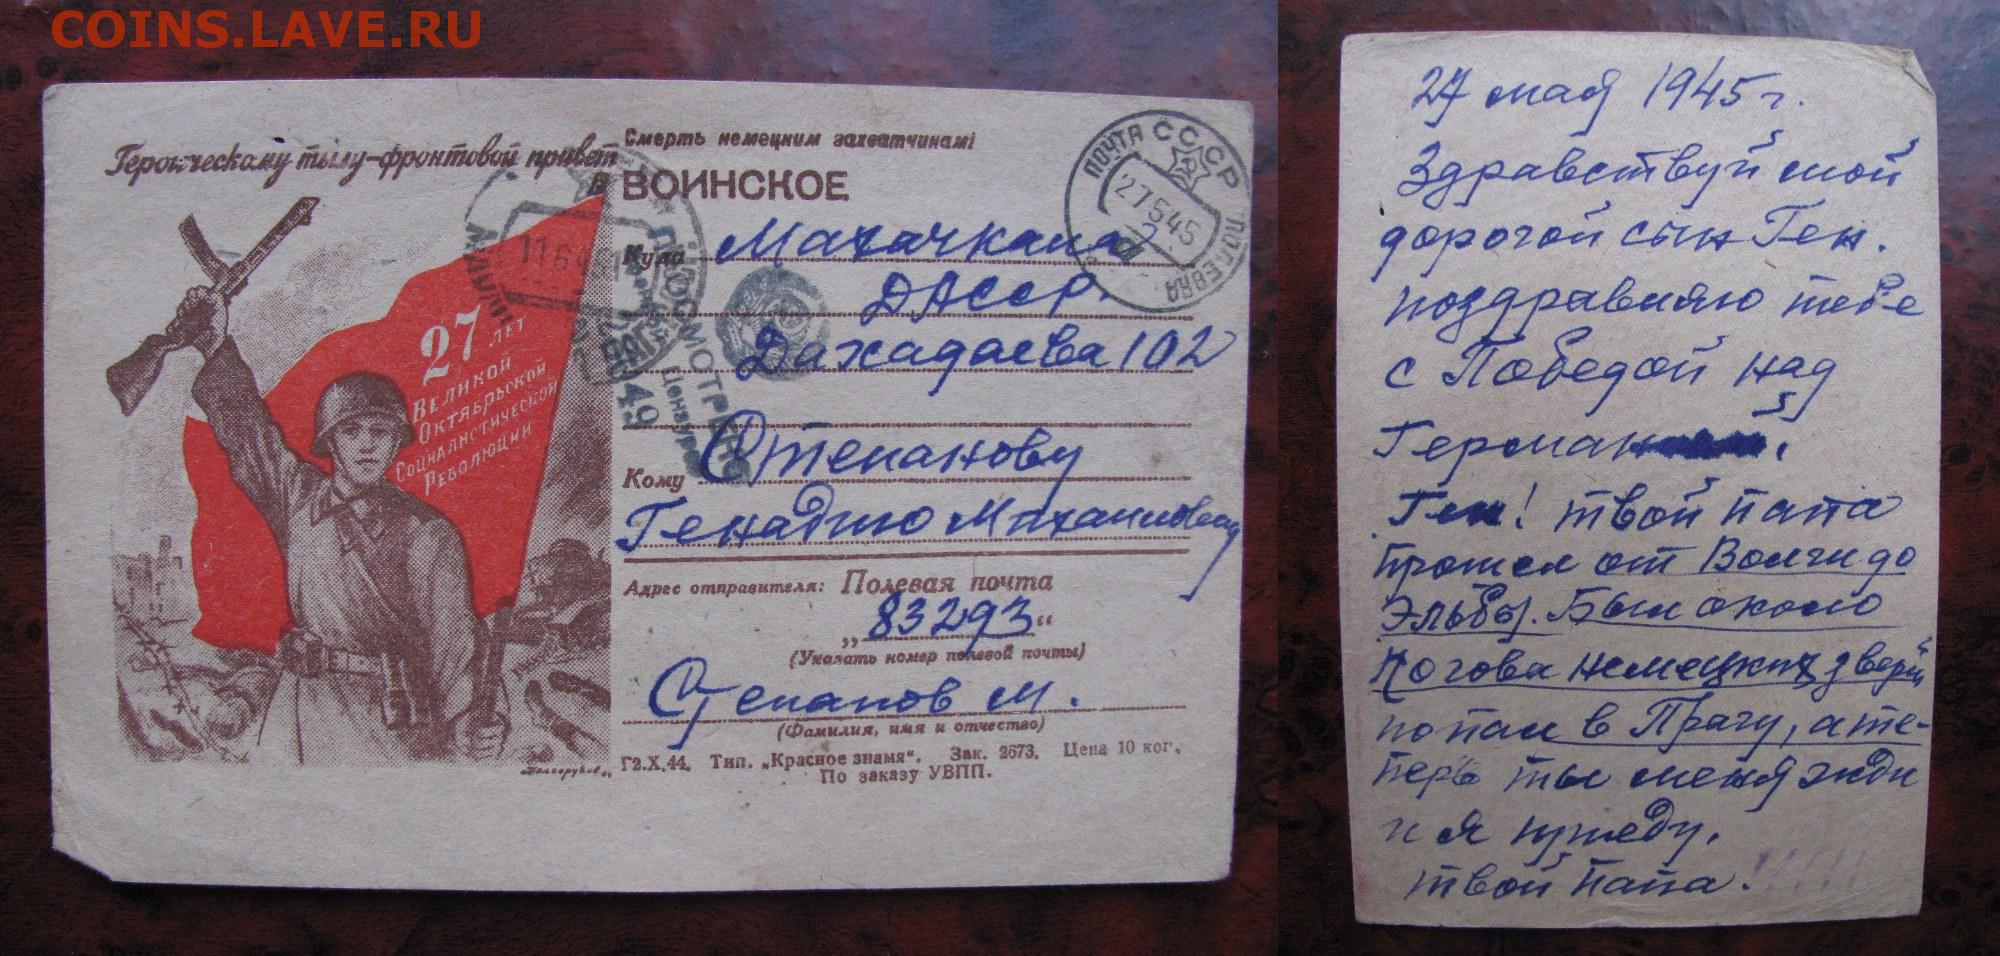 COINS.LAVE.RU
Героическому тылу-фронтовой привет
Смерть немецким захватчикам!
ВОИНСКОЕ
ПОЧТА СССР
27545
ПОЛЕВАЯ
Куда Махачкала
ДАССР.
Дахадаева 102
ПРОСМОТРЕНО
Цензурой
Кому Степанову
Генадию Михайловичу
27 ЛЕТ
ВЕЛИКОЙ
ОКТЯБРЬСКОЙ
СОЦИАЛИСТИЧЕСКОЙ
РЕВОЛЮЦИИ
Адрес отправителя: Полевая почта
„83293“
(Указать номер полевой почты)
Степанов М.
(Фамилия, имя и отчество)
Г2.X.44. Тип. „Красное знамя“. Зак. 2673. Цена 10 коп.
По заказу УВПП.
27 мая 1945 г.
Здравствуй мой
дорогой сын Ген.
поздравляю тебе
с Победой над
Герман
Ген! твой папа
прошел от Волги до
Эльбы. Был около
логова немецких зверей
попал в Прагу, а те-
перь ты меня жди
и я приеду.
твой папа.